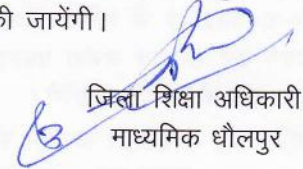 की जायेंगी।
जिला शिक्षा अधिकारी
माध्यमिक धौलपुर